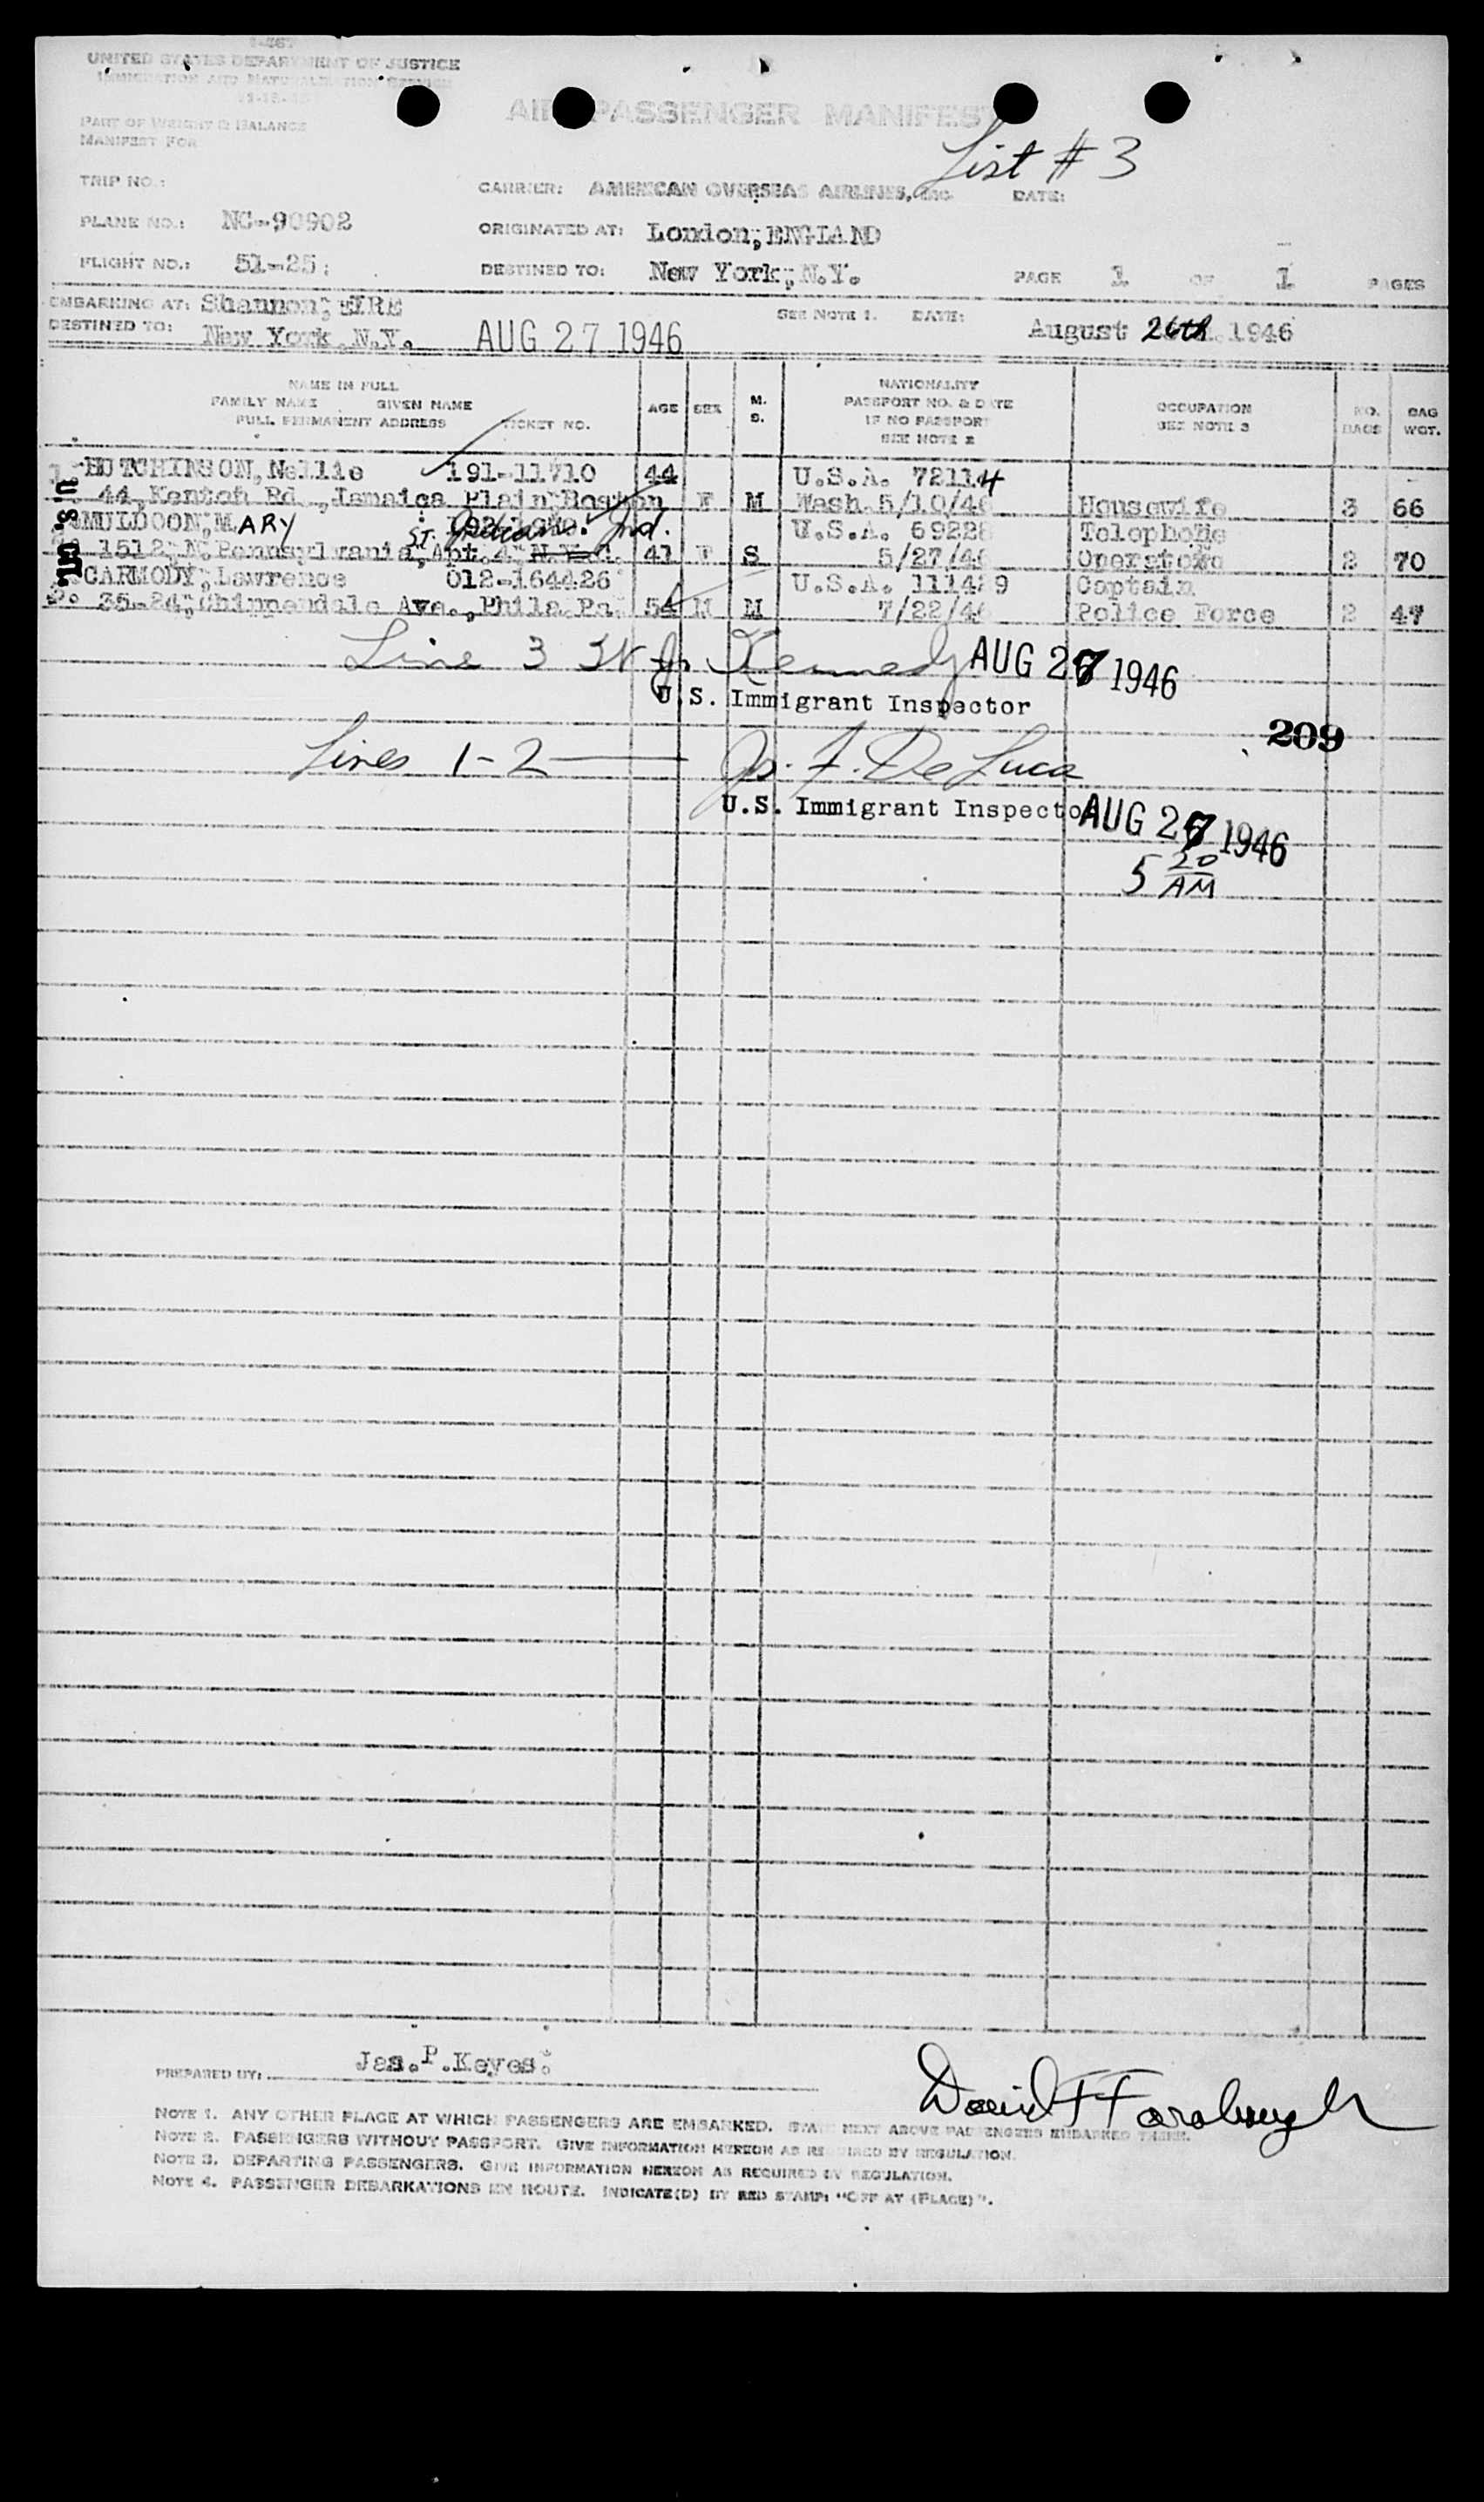 UNITED STATES DEPARTMENT OF JUSTICE
IMMIGRATION AND NATURALIZATION SERVICE
AIR PASSENGER MANIFEST
PART OF WEIGHT & BALANCE
MANIFEST FOR
List # 3
TRIP NO.:
CARRIER: AMERICAN OVERSEAS AIRLINES, INC. DATE:
PLANE NO.: NC-90902
ORIGINATED AT: London, ENGLAND
FLIGHT NO.: 51-25
DESTINED TO: New York, N.Y.
PAGE 1 OF 1 PAGES
EMBARKING AT: Shannon, EIRE
SEE NOTE 1. DATE: August 26th 1946
DESTINED TO: New York, N.Y.
AUG 27 1946
NAME IN FULL
FAMILY NAME GIVEN NAME
FULL PERMANENT ADDRESS TICKET NO.
AGE SEX M. S.
NATIONALITY
PASSPORT NO. & DATE
IF NO PASSPORT
SEE NOTE 2
OCCUPATION
SEE NOTE 3
NO. BAGS
BAG WGT.
U.S. CIT.
1. HUTCHINSON, Nellie 191-11710 44 U.S.A. 72114
44, Kenton Rd., Jamaica Plain, Boston F M Wash. 5/10/46 Housewife 3 66
MULDOON, MARY U.S.A. 6922 Telephone
1512, N. Pennsylvania St. Apt. 4, N.Y.C. Indiana. Ind. 41 F S 5/27/46 Operator 2 70
CARMODY, Lawrence 012-164426 U.S.A. 111489 Captain
3. 35-24, Chippendale Ave., Phila. Pa. 54 M M 7/22/46 Police Force 2 47
Line 3 Kennedy AUG 27 1946
U.S. Immigrant Inspector
209
Lines 1-2 Jos. F. De Luca
U.S. Immigrant Inspector AUG 27 1946
5 20 AM
PREPARED BY: Jas. P. Keyes.
NOTE 1. ANY OTHER PLACE AT WHICH PASSENGERS ARE EMBARKED. STATE NEXT ABOVE PASSENGERS EMBARKED THERE.
NOTE 2. PASSENGERS WITHOUT PASSPORT. GIVE INFORMATION HEREON AS REQUIRED BY REGULATION.
NOTE 3. DEPARTING PASSENGERS. GIVE INFORMATION HEREON AS REQUIRED BY REGULATION.
NOTE 4. PASSENGER DEBARKATIONS EN ROUTE. INDICATE(D) BY RED STAMP: "OFF AT (PLACE)".